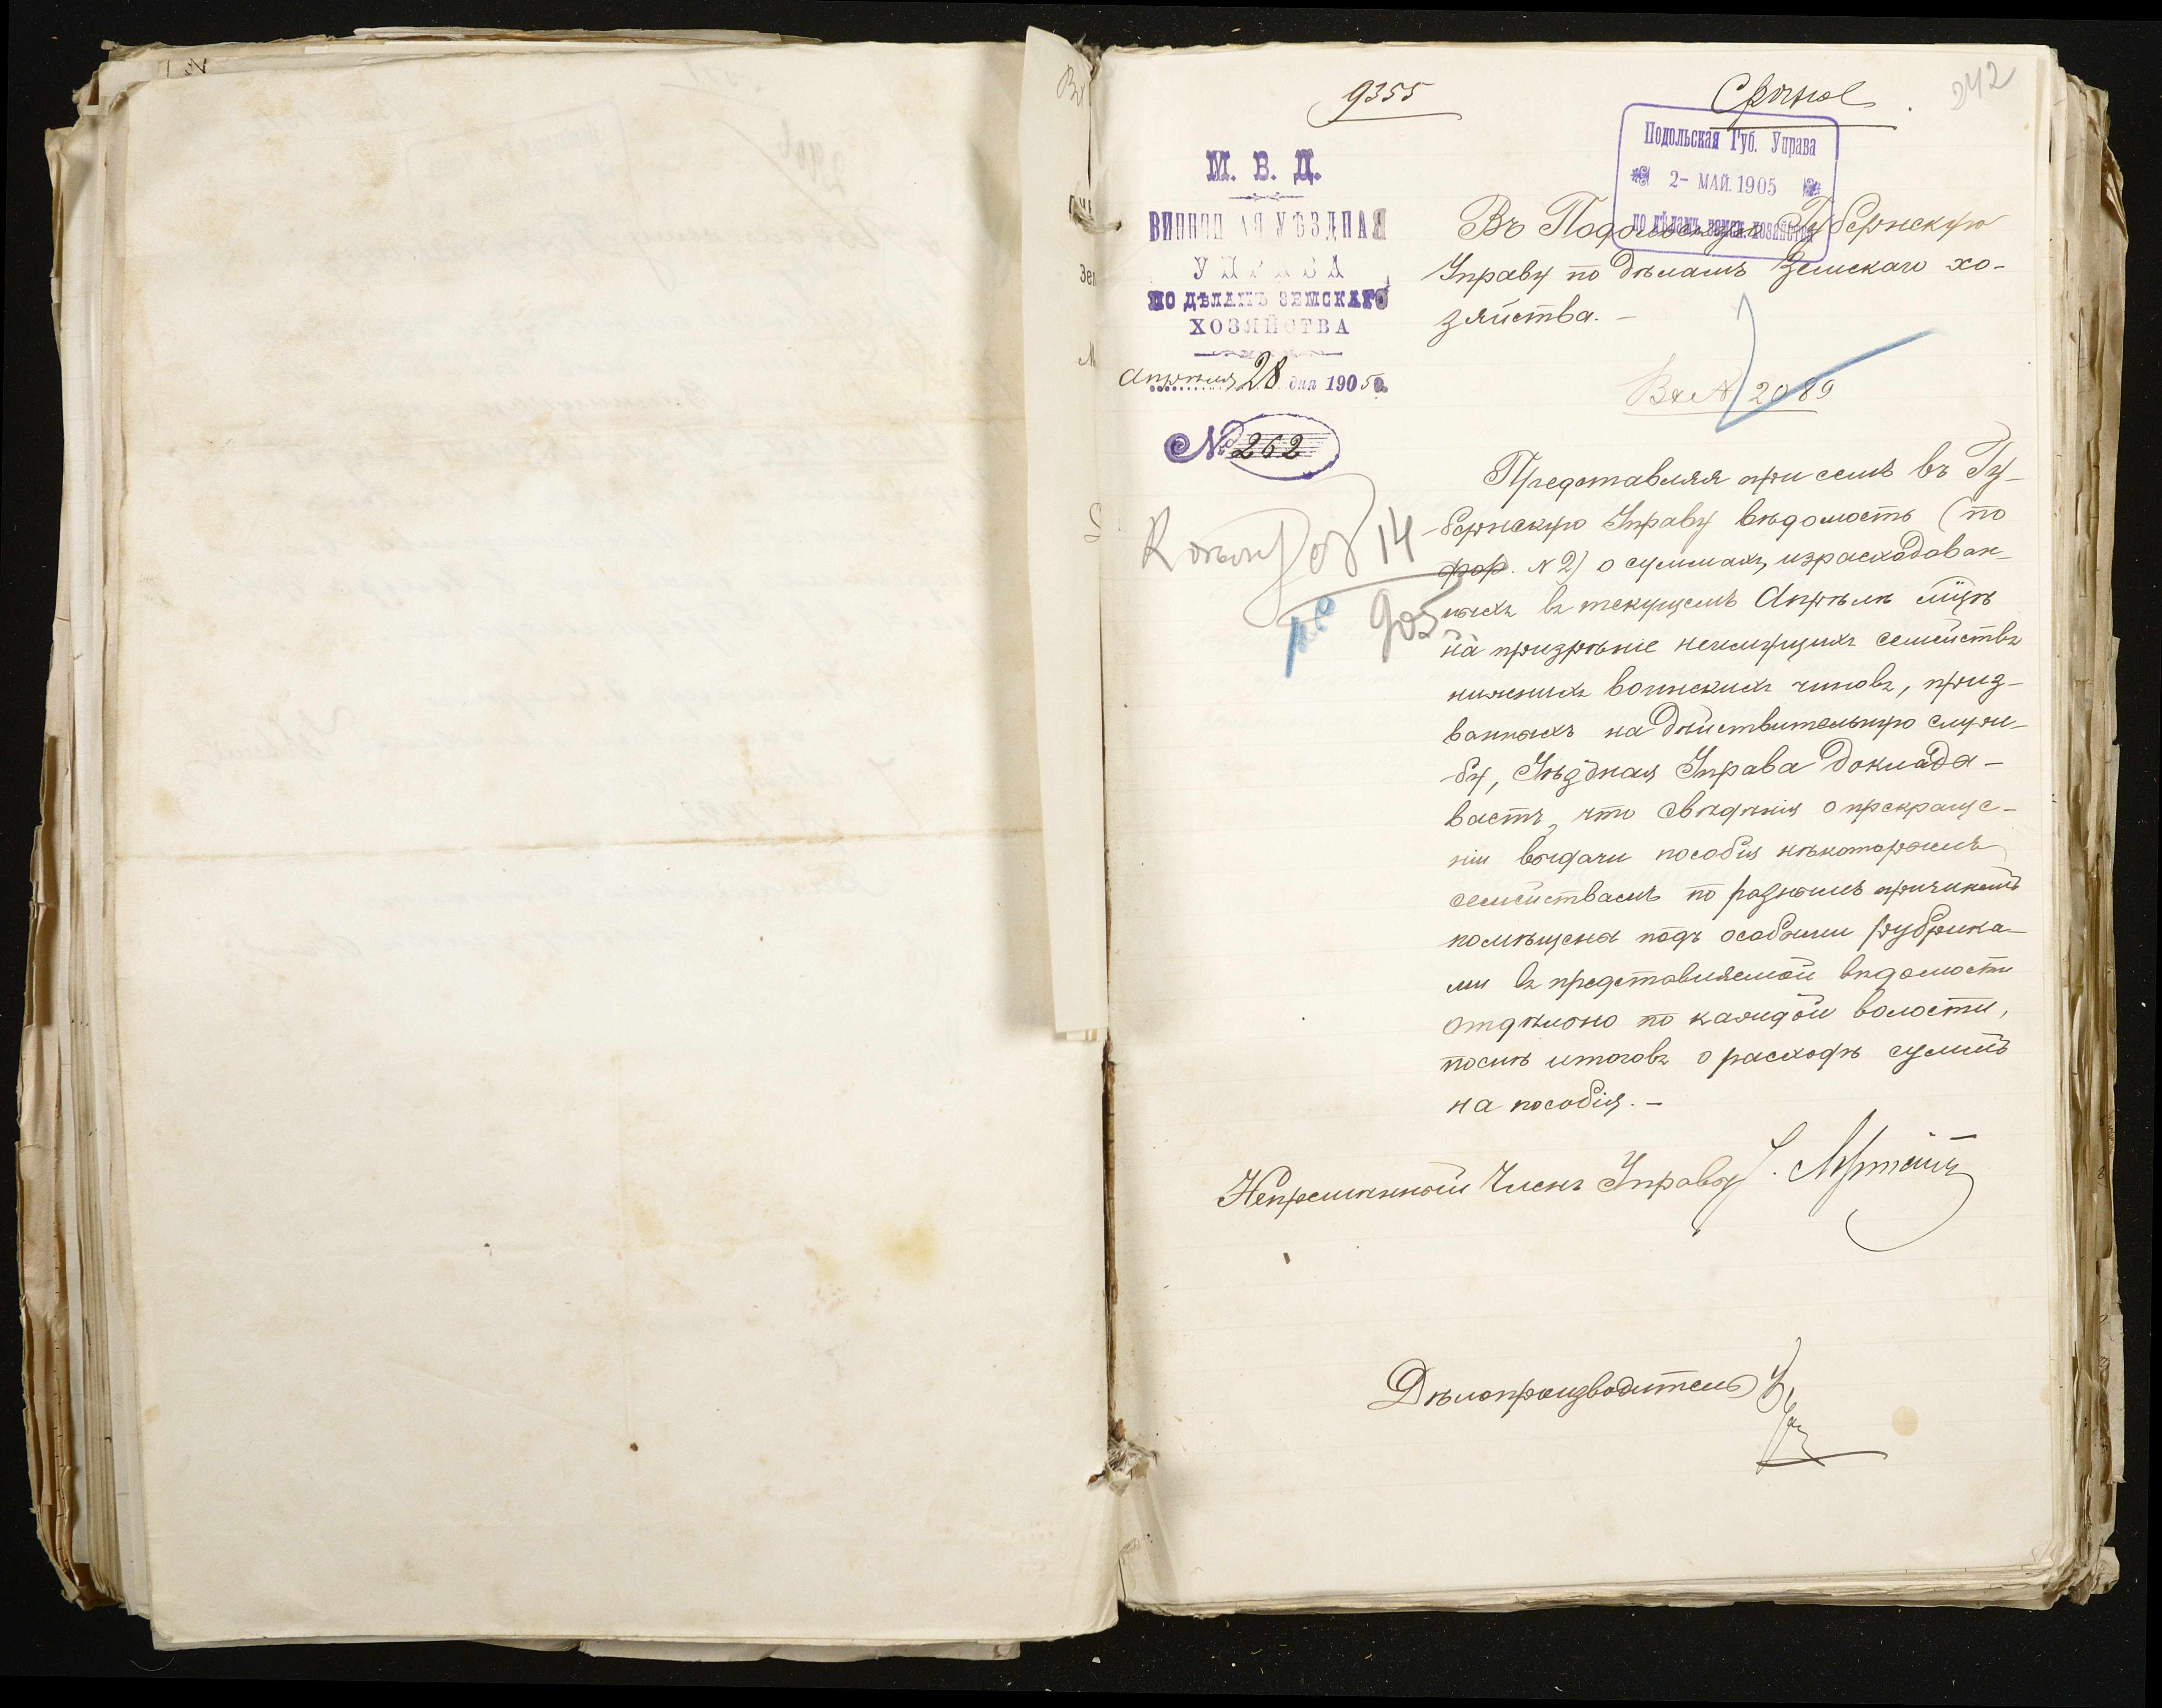 9355
Срочное
242
Подольская Губ. Управа
2- МАЙ. 1905
по дѣламъ земск. хозяйства
М. В. Д.
ВИННИЦ АЯ УѢЗДНАЯ
УПРАВА
ПО ДѢЛАМЪ ЗЕМСКАГО
ХОЗЯЙСТВА
Апрѣля 28 дня 1905 г.
№ 262
Въ Подольскую Губернскую
Управу по дѣламъ Земскаго хо-
зяйства. —
Вх № 2089
Представляя при семъ въ Гу-
бернскую Управу вѣдомость (по
фор. № 2) о суммахъ, израсходован-
ныхъ въ текущемъ Апрѣлѣ м-цѣ
на призрѣніе неимущихъ семействъ
нижнихъ воинскихъ чиновъ, приз-
ванныхъ на дѣйствительную служ-
бу, Уѣздная Управа доклады-
ваетъ, что свѣдѣнія о прекраще-
ніи выдачи пособія нѣкоторымъ
семействамъ по разнымъ причинамъ
помѣщены подъ особыми рубрика-
ми въ представляемой вѣдомости
отдѣльно по каждой волости,
послѣ итоговъ о расходѣ суммъ
на пособія. —
14
905
Непремѣнный Членъ Управы
Дѣлопроизводитель